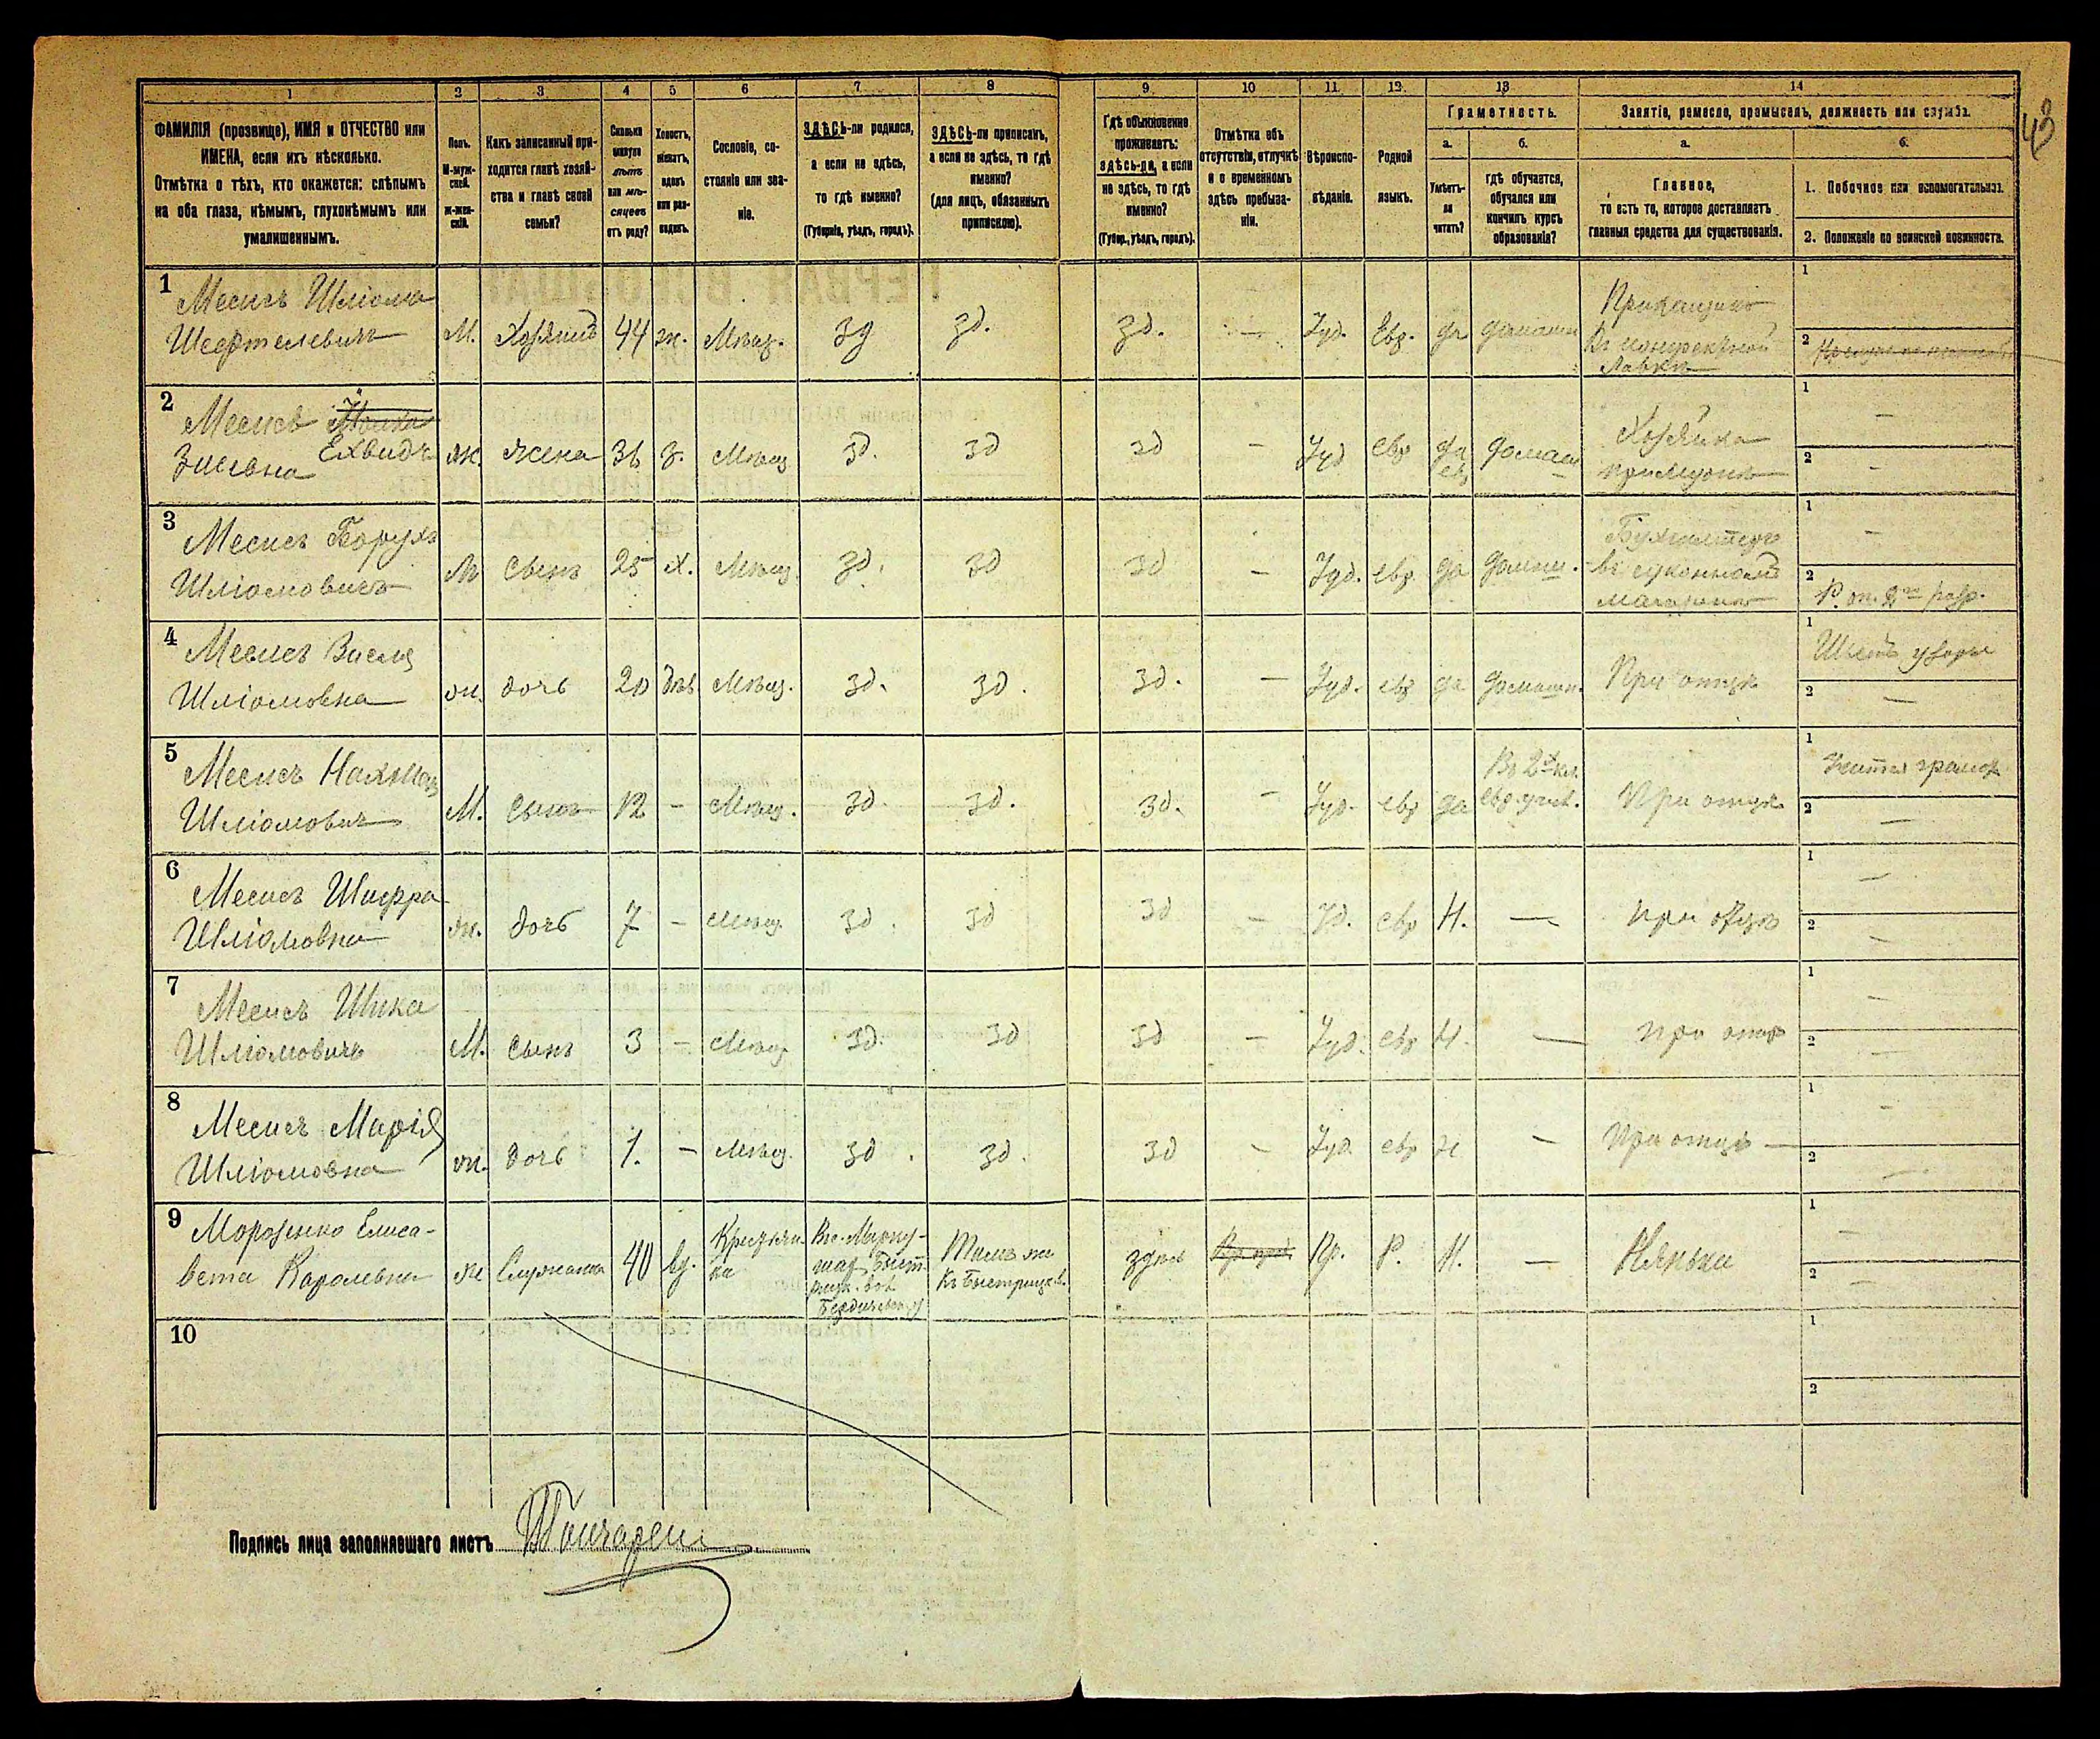 43
1 2 3 4 5 6 7 8 9 10 11 12 13 14
ФАМИЛІЯ (прозвище), ИМЯ и ОТЧЕСТВО или
ИМЕНА, если ихъ нѣсколько.
Отмѣтка о тѣхъ, кто окажется: слѣпымъ
на оба глаза, нѣмымъ, глухонѣмымъ или
умалишеннымъ.
Полъ.
М-муж-
ской.
ж-жен-
скій.
Какъ записанный при-
ходится главѣ хозяй-
ства и главѣ своей
семьи?
Сколько
минуло
лѣтъ
или мѣ-
сяцевъ
отъ роду?
Холостъ,
женатъ,
вдовъ
или раз-
веденъ.
Сословіе, со-
стояніе или зва-
ніе.
ЗДѢСЬ-ли родился,
а если не здѣсь,
то гдѣ именно?
(Губернія, уѣздъ, городъ).
ЗДѢСЬ-ли приписанъ,
а если не здѣсь, то гдѣ
именно?
(для лицъ, обязанныхъ
припискою).
Гдѣ обыкновенно
проживаетъ:
здѣсь-ли, а если
не здѣсь, то гдѣ
именно?
(Губер., уѣздъ, городъ).
Отмѣтка объ
отсутствіи, отлучкѣ
и о временномъ
здѣсь пребыва-
ніи.
Вѣроиспо-
вѣданіе.
Родной
языкъ.
Грамотность.
а.
Умѣетъ-
ли
читать?
б.
гдѣ обучается,
обучался или
кончилъ курсъ
образованія?
Занятіе, ремесло, промыселъ, должность или служба.
а.
Главное,
то есть то, которое доставляетъ
главныя средства для существованія.
б.
1. Побочное или вспомогательное.
2. Положеніе по воинской повинности.
1 Месисъ Шліома
Шефтелевичъ М. Хозяинъ 44 ж. Мѣщ. зд зд. зд. — Іуд. Евр. да домашн Прикащикъ
Лавкѣ
1
2
2 Месисъ
Ехвидъ
ж. жена 36 з. Мѣщ зд. зд зд — Іуд евр да домаш Хозяйка
1 —
2 —
3 Месисъ Борухъ
Шліомовичъ М сынъ 25 х. Мѣщ. зд. зд зд — Іуд. евр. да домаш. Бухгалтеръ
въ суконномъ
магазинѣ
1 —
2
4 Месисъ
Шліомовна ж. дочь 20 дѣв Мѣщ. зд. зд. зд. — Іуд. евр да домашн. При отцѣ
1
2 —
5 Месисъ Нахман
Шліомовичъ М. сынъ 12 — Мѣщ. зд. зд. зд. — Іуд. евр да
Въ 2 кл.
евр. учил. При отцѣ
1
2 —
6 Месисъ Шифра
Шліомовна ж. дочь 7 — Мѣщ. зд. зд зд — Іуд. евр Н. — при отцѣ
1 —
2 —
7 Месисъ Шика
Шліомовичъ М. сынъ 3 — Мѣщ зд. зд зд — Іуд. евр Н. — при отцѣ
1 —
2 —
8 Месисъ Марія
Шліомовна ж. дочь 1. — Мѣщ. зд. зд. зд — Іуд. евр Н — При отцѣ —
1 —
2 —
9 Морозенко Елиса-
вета Каролевна ж Служанка 40 вд. Крестьян-
ка
Тамъ же
здѣсь Пр. Р. Н. — Нянька
1 —
2 —
10
1
2
Подпись лица заполнявшаго листъ